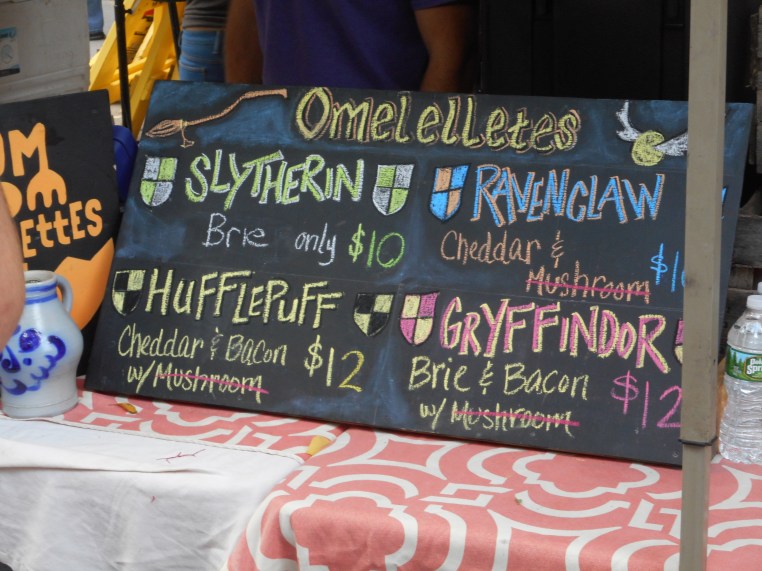 Omelelletes
SLYTHERIN
Brie only $10
RAVENCLAW
Cheddar &
Mushroom
HUFFLEPUFF
Cheddar & Bacon $12
w/ Mushroom
GRYFFINDOR
Brie & Bacon $12
w/ Mushroom